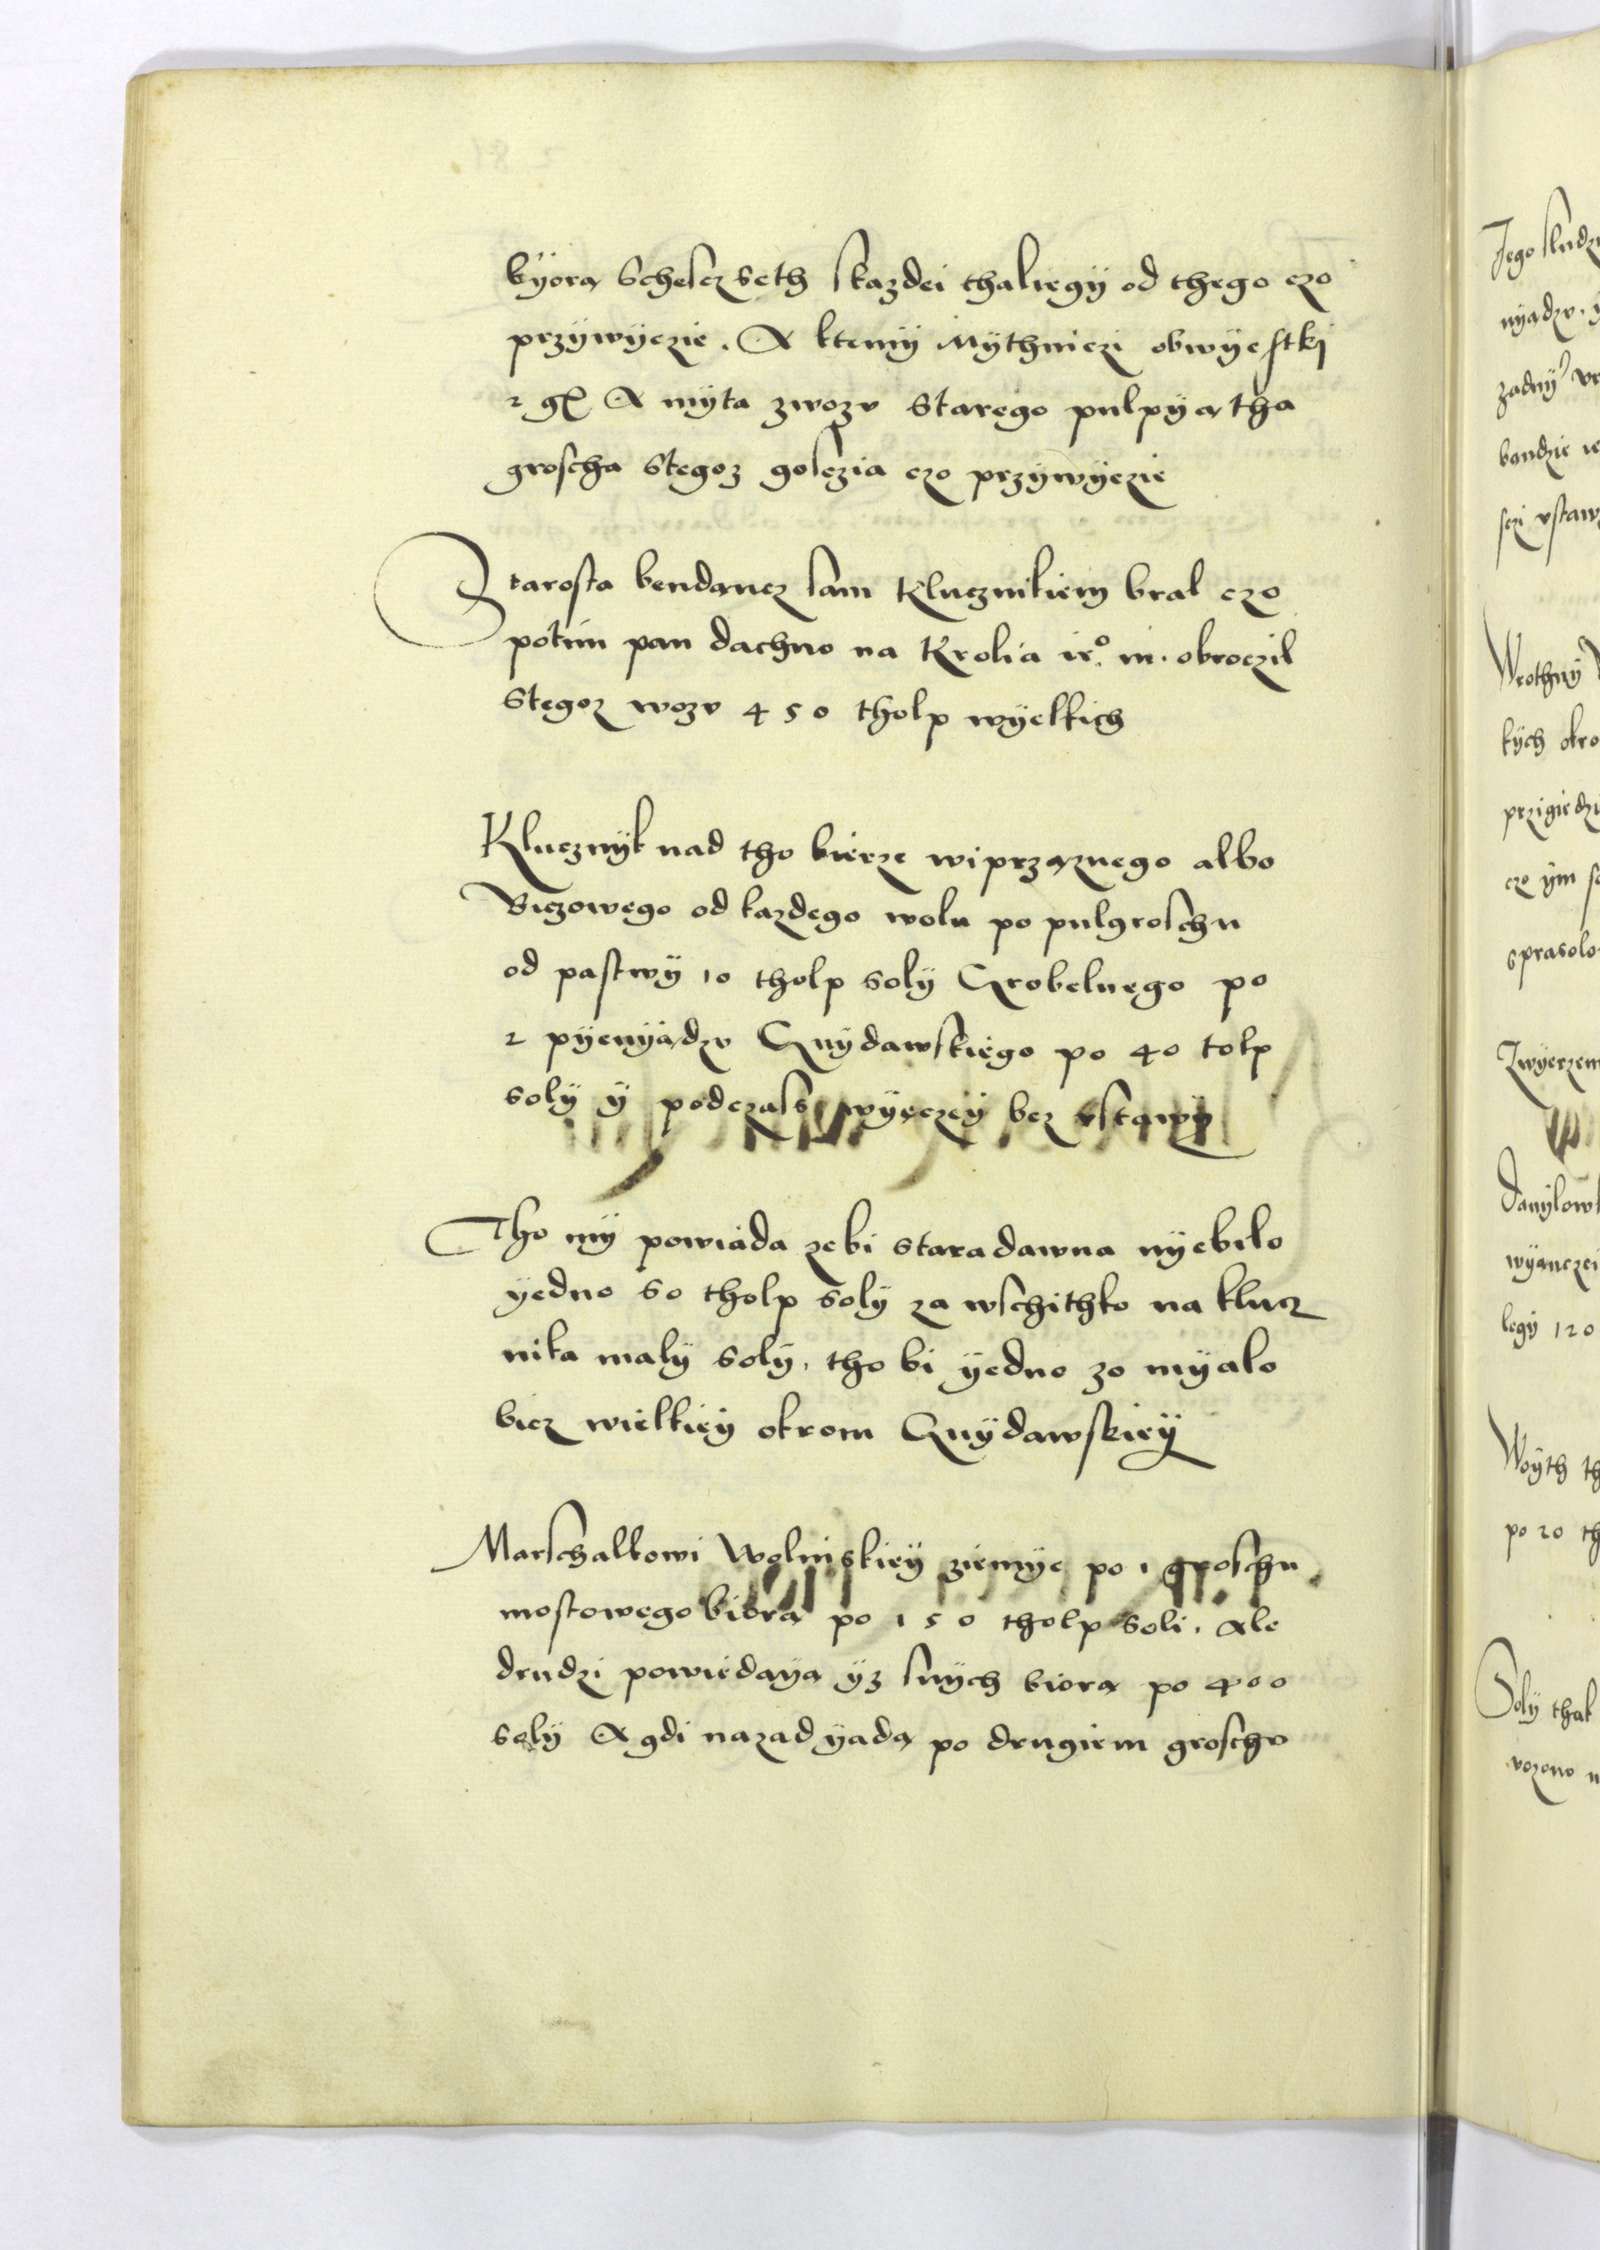 byorą Schescz Seth skazdei thaliegy od thego czo
przywyezie. A ktemy Mythniczi obwyestki
2 gl A myta zwozv Starego pulpyątha
groscha Stegoz gosczia czo przywyezie
Starosta bendancz sam Kluznikiem bral czo
potim pan dachno na Krolia ie.º m. obroczil
Stegoz wozv 450 tholp wyelkich
Klucznyk nad tho bierze wiprząznego albo
Biczowego od kazdego wolu po pulgroschu
od pastwy 10 tholp soly Grobelnego po
2 pyenyądzv Gnydawskiego po 40 tolp
soly y podczass wyęczey bez vstawy
Tho my powiada zebi staradawna nyebilo
yedno 50 tholp soly za wschithko na klucz
nika maly soly, tho bi yedno 30 myalo
bicz wielkiey okrom Gnydawskiey
Marschalkowi Wolinskiey ziemye po 1 groschu
mostowego biorą po 150 tholp soli. Ale
drudzi powiedayą yz snych biorą po 400
soly A gdi nazad yadą po drugiem groschv
Jego sludz
nyądzv. y
zadny
bendzie ie
sczi vstaw
Wrothny
kych okro
przigiedzi
czo ym
sprasolo
Zwyerzem
Danylow
wyanczei
legy 120
Woyth th
po 20 th
Soly thak
vozono n